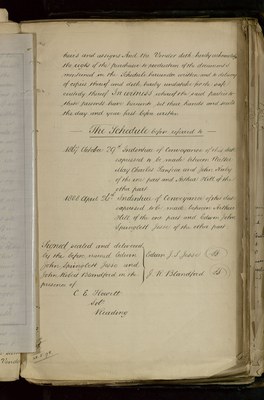 heirs and assigns And the Vendor doth hereby acknowledge
the right of the purchasers to production of the documents
mentioned in the Schedule hereunder written and to delivery
of copies thereof and doth hereby undertake for the safe
custody thereof In witness whereof the said parties to
these presents have hereunto set their hands and seals
the day and year first before written
The Schedule before referred to
October 29th Indenture of Conveyance of this date
expressed to be made between
May Charles Simpson and John
of the one part and Arthur Hill of the
other part
April 26th Indenture of Conveyance of this date
expressed to be made between Arthur
Hill of the one part and Edwin John
Springlett of the other part
Signed sealed and delivered
by the before named Edwin
John Springlett and
John Blandford in the
presence of
Edwin J. S.
J. Blandford
C. E. Hewett
Sol
Reading